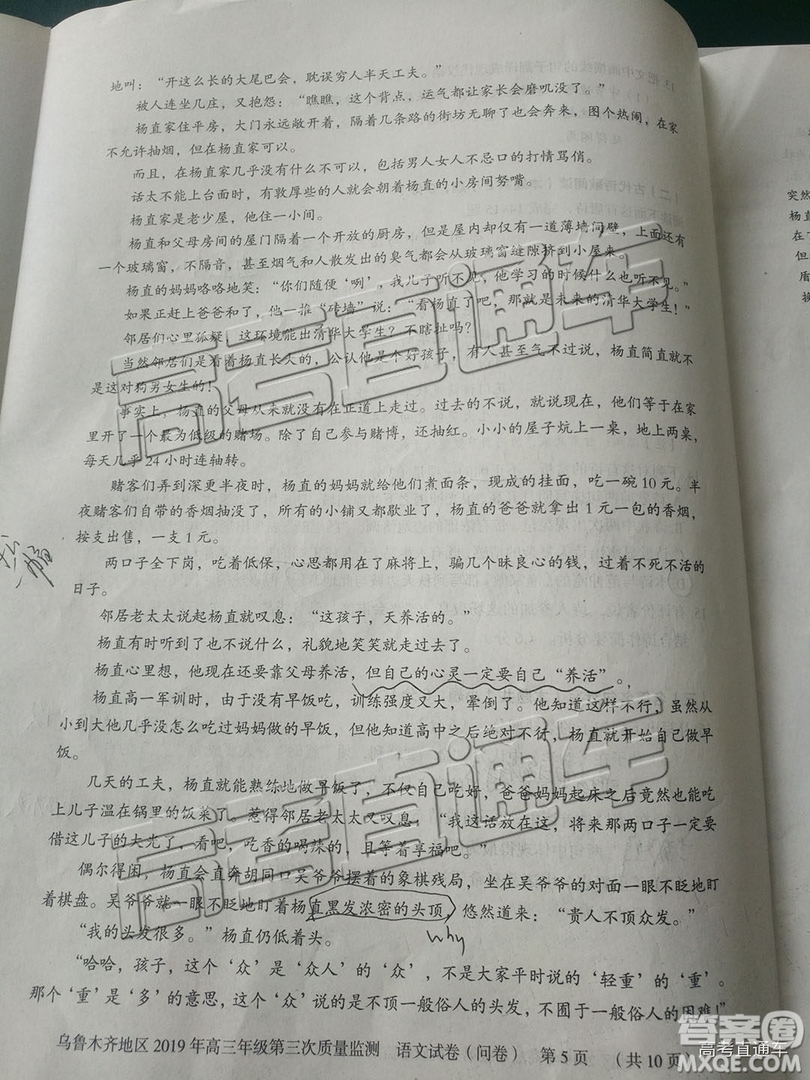 地叫：“开这么长的大尾巴会，耽误穷人半天工夫。”
被人连坐几庄，又抱怨：“瞧瞧，这个背点，运气都让家长会磨叽没了。”
杨直家住平房，大门永远敞开着，隔着几条路的街坊无聊了也会奔来，图个热闹，在家
不允许抽烟，但在杨直家可以。
而且，在杨直家几乎没有什么不可以，包括男人女人不忌口的打情骂俏。
话太不能上台面时，有敦厚些的人就会朝着杨直的小房间努嘴。
杨直家是老少屋，他住一小间。
杨直和父母房间的屋门隔着一个开放的厨房，但是屋内却仅有一道薄墙间壁，上面还有
一个玻璃窗，不隔音，甚至烟气和人散发出的臭气都会从玻璃窗缝隙挤到小屋来。
杨直的妈妈咯咯地笑：“你们随便‘咧’，我儿子听不见，他学习的时候什么也听不见。”
如果正赶上爸爸和了，他一推“砖墙”说：“看杨直了吧，那就是未来的清华大学生！”
邻居们心里狐疑，这环境能出清华大学生？不瞎扯吗？
当然邻居们是看着杨直长大的，公认他是个好孩子，有人甚至气不过说，杨直简直就不
是这对狗男女生的！
事实上，杨直的父母从来就没有在正道上走过。过去的不说，就说现在，他们等于在家
里开了一个最为低级的赌场。除了自己参与赌博，还抽红。小小的屋子炕上一桌，地上两桌，
每天几乎24小时连轴转。
赌客们弄到深更半夜时，杨直的妈妈就给他们煮面条，现成的挂面，吃一碗10元。半
夜赌客们自带的香烟抽没了，所有的小铺又都歇业了，杨直的爸爸就拿出1元一包的香烟，
按支出售，一支1元。
两口子全下岗，吃着低保，心思都用在了麻将上，骗几个昧良心的钱，过着不死不活的
日子。
邻居老太太说起杨直就叹息：“这孩子，天养活的。”
杨直有时听到了也不说什么，礼貌地笑笑就走过去了。
杨直心里想，他现在还要靠父母养活，但自己的心灵一定要自己“养活”。
杨直高一军训时，由于没有早饭吃，训练强度又大，晕倒了。他知道这样不行，虽然从
小到大他几乎没怎么吃过妈妈做的早饭，但他知道高中之后绝对不行，杨直就开始自己做早
饭。
几天的工夫，杨直就能熟练地做早饭了，不仅自己吃好，爸爸妈妈起床之后竟然也能吃
上儿子温在锅里的饭菜了。惹得邻居老太太又叹息：“我这话放在这，将来那两口子一定要
借这儿子的大光了，看吧，吃香的喝辣的，且等着享福吧。”
偶尔得闲，杨直会直奔胡同口吴爷爷摆着的象棋残局，坐在吴爷爷的对面一眼不眨地盯
着棋盘。吴爷爷就一眼不眨地盯着杨直黑发浓密的头顶，悠然道来：“贵人不顶众发。”
“我的头发很多。”杨直仍低着头。
why
“哈哈，孩子，这个‘众’是‘众人’的‘众’，不是大家平时说的‘轻重’的‘重’。
那个‘重’是‘多’的意思，这个‘众’说的是不顶一般俗人的头发，不囿于一般俗人的困难！”
乌鲁木齐地区2019年高三年级第三次质量监测 语文试卷（问卷） 第5页 （共10页）
高考直通车
高考直通车
答案圈
MXQE.COM
高考直通车
突然
杨直
在丁
但
质
操